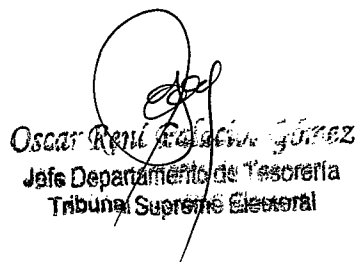 Oscar René
Jefe Departamento de Tesorería
Tribunal Supremo Electoral